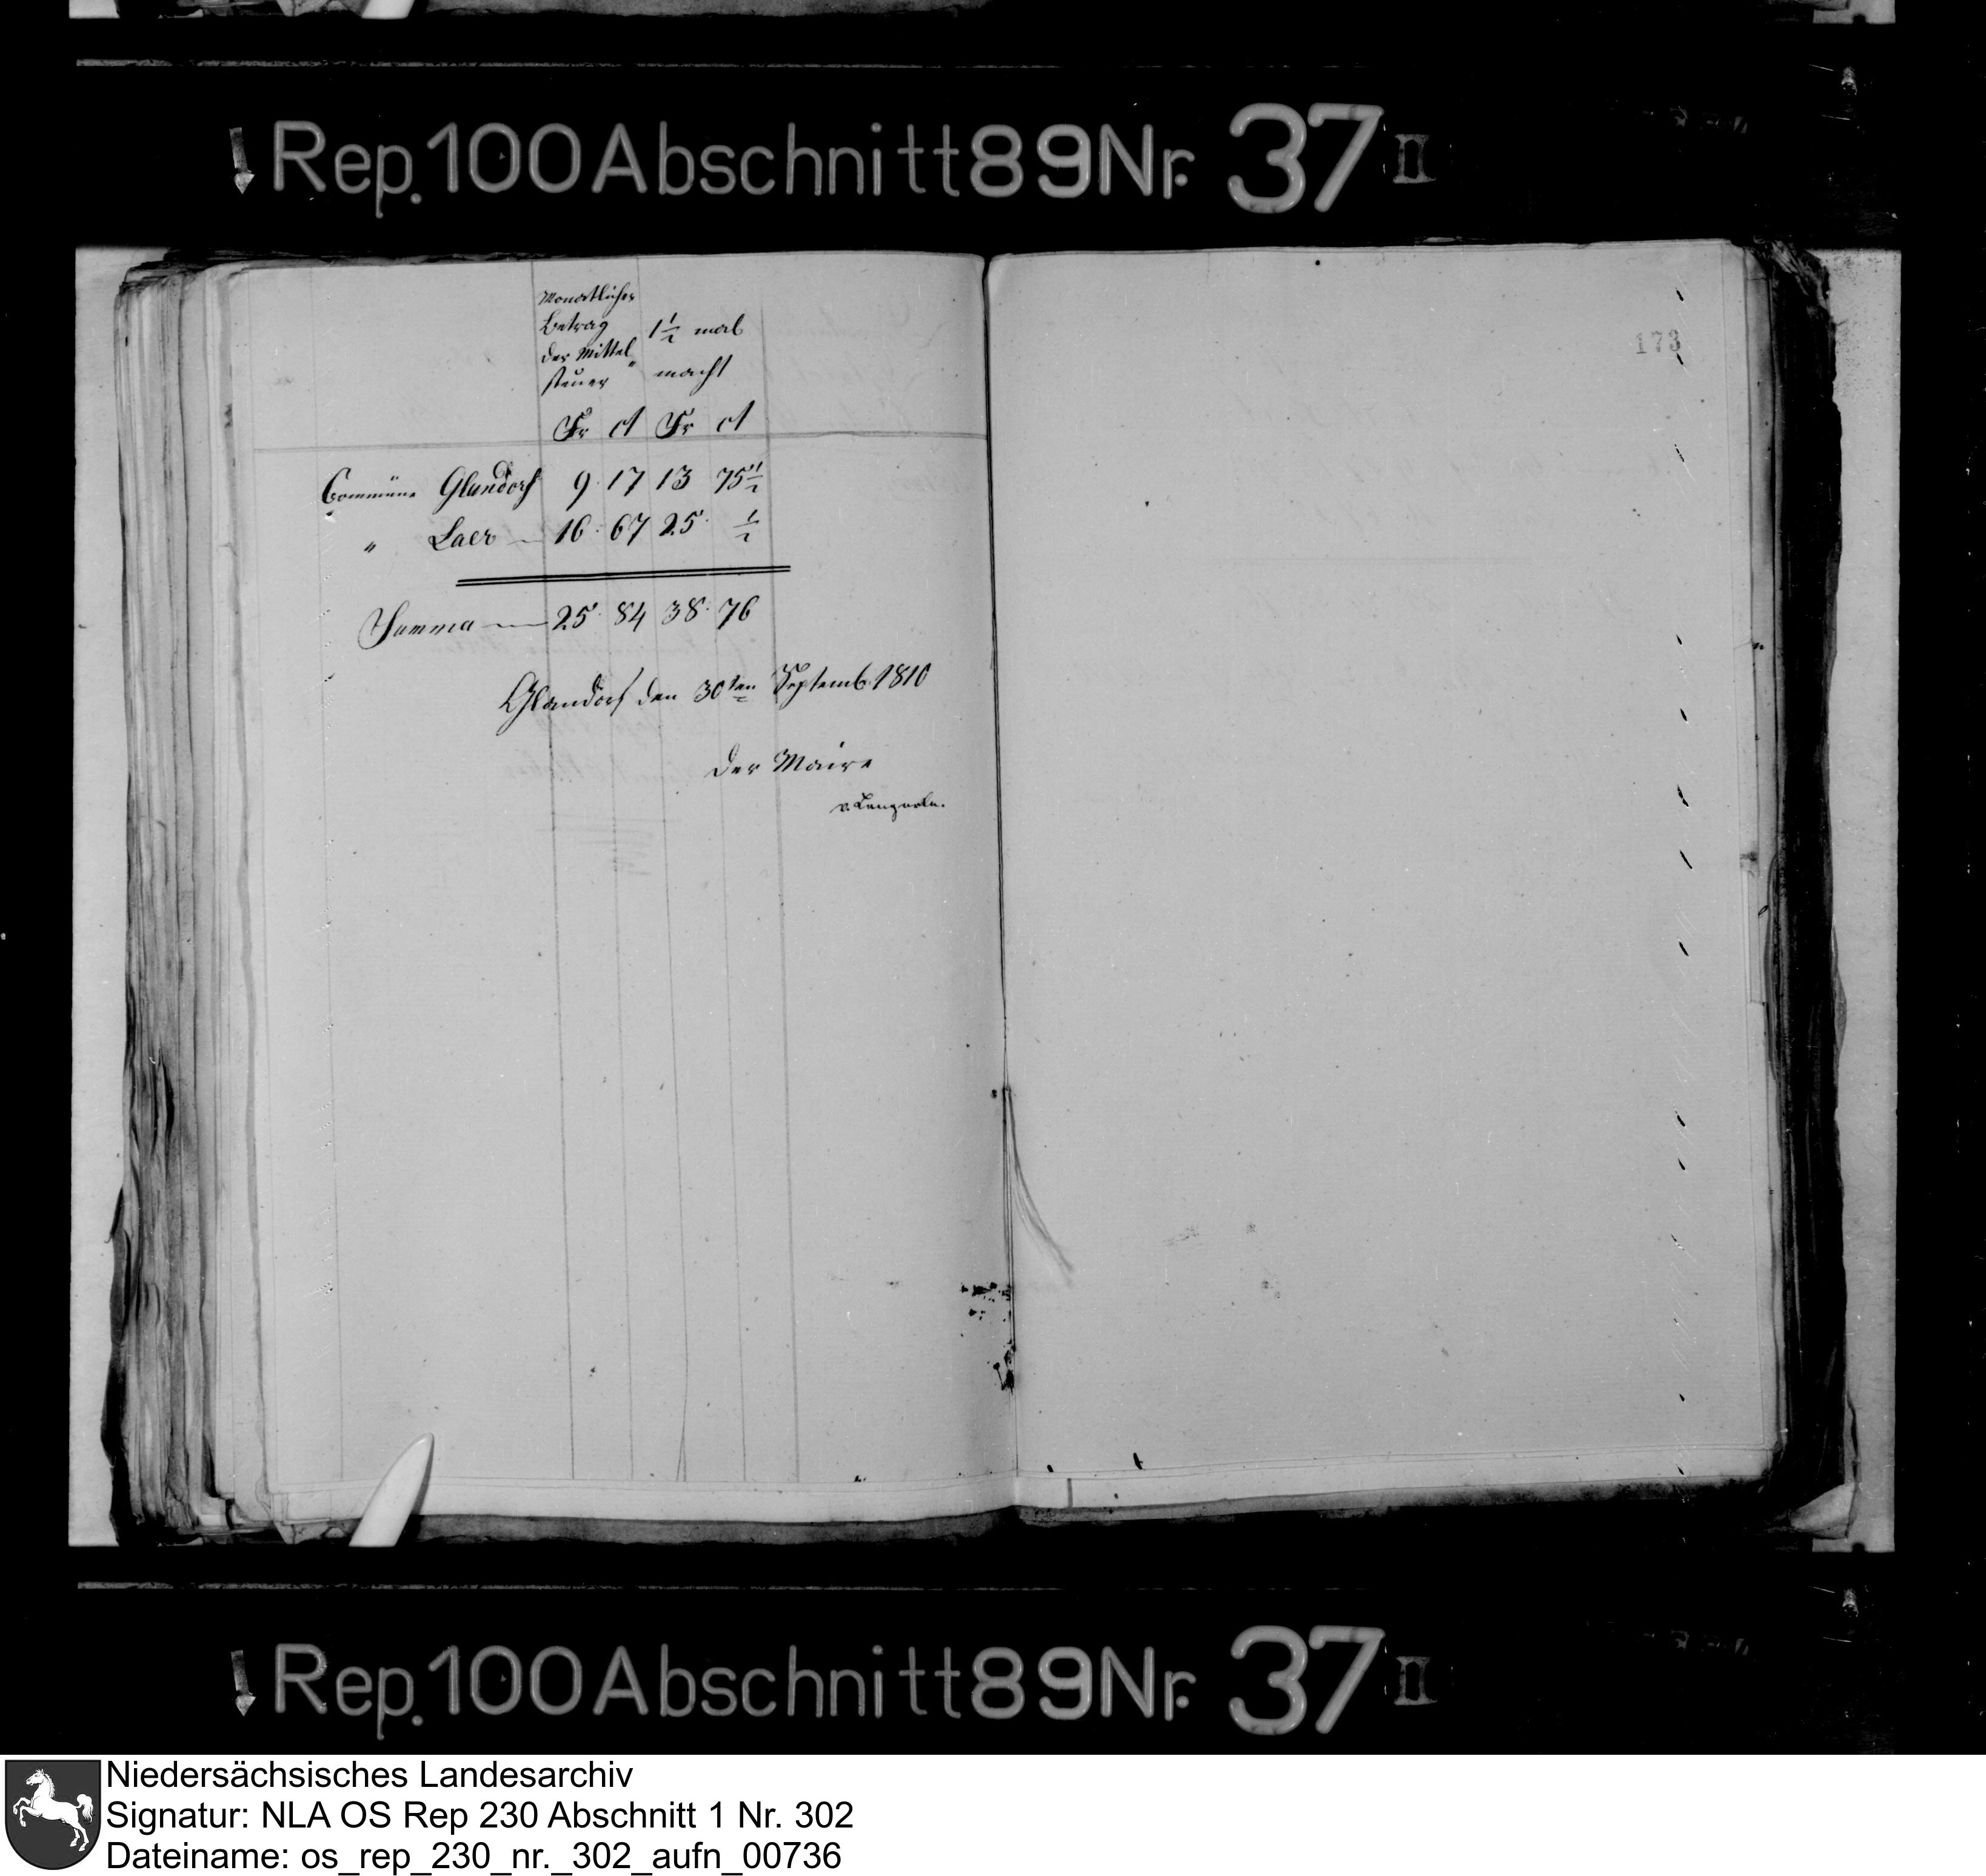 Rep. 100 Abschnitt 89 Nr. 37 II
Monatlicher
Betrag
der Mittel„
steuer
1 1/2 mal
macht
Fr ct Fr ct
173
Commüne Glandorf 9 17 13 75 1/2
„ Laer — 16 67 25 1/2
Summa — 25 84 38 76
Glandorf den 30ten Septemb. 1810
Der Maire
Rep. 100 Abschnitt 89 Nr. 37 II
Niedersächsisches Landesarchiv
Signatur: NLA OS Rep 230 Abschnitt 1 Nr. 302
Dateiname: os_rep_230_nr._302_aufn_00736